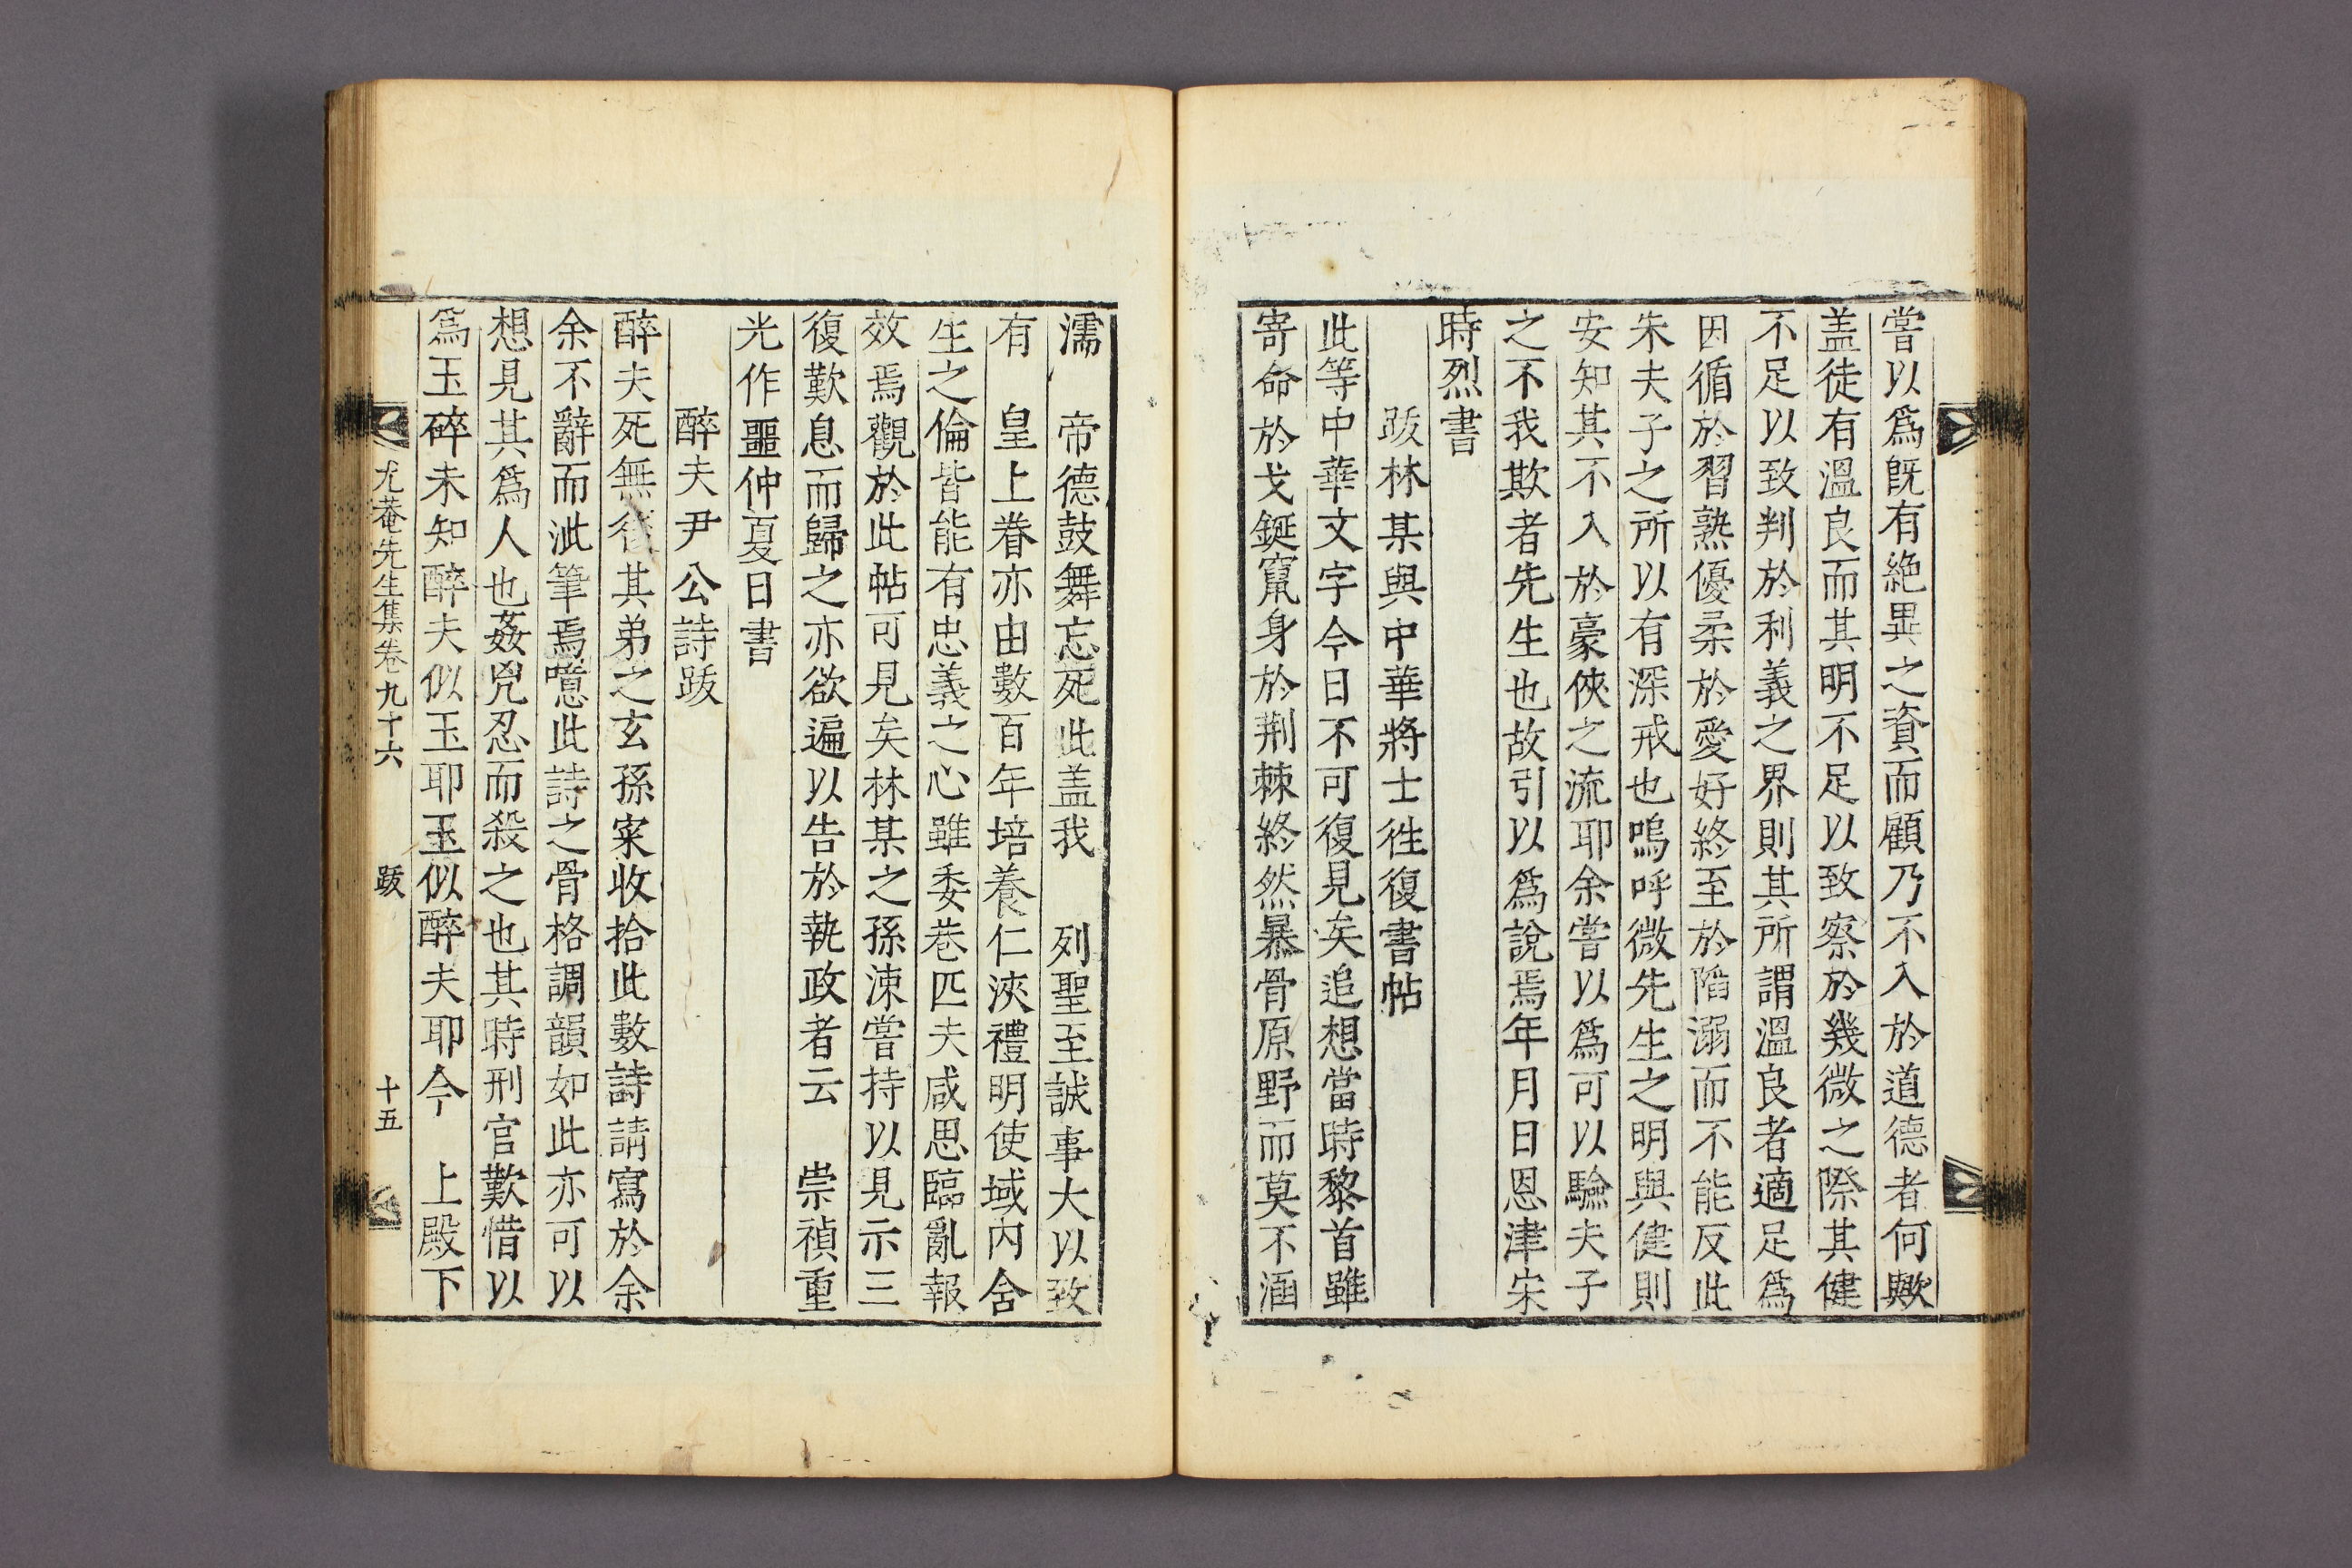 嘗以爲旣有絶異之資而顧乃不入於道德者何歟
盖徒有溫良而其明不足以致察於幾微之際其健
不足以致判於利義之界則其所謂溫良者適足爲
因循於習熟優柔於愛好終至於陷溺而不能反此
朱夫子之所以有深戒也嗚呼微先生之明與健則
安知其不入於豪俠之流耶余嘗以爲可以驗夫子
之不我欺者先生也故引以爲說焉年月日恩津宋
時烈書
跋林某與中華將士徃復書帖
此等中華文字今日不可復見矣追想當時黎首雖
寄命於戈鋋竄身於荆棘終然暴骨原野而莫不涵
濡　帝德鼓舞忘死此盖我　列聖至誠事大以致
有　皇上眷亦由數百年培養仁浹禮明使域內含
生之倫皆能有忠義之心雖委巷匹夫咸思臨亂報
效焉觀於此帖可見矣林某之孫涑嘗持以見示三
復歎息而歸之亦欲遍以告於執政者云　崇禎重
光作噩仲夏日書
醉夫尹公詩跋
醉夫死無後其弟之玄孫寀收拾此數詩請寫於余
余不辭而泚筆焉噫此詩之骨格調韻如此亦可以
想見其爲人也姦兇忍而殺之也其時刑官歎惜以
爲玉碎未知醉夫似玉耶玉似醉夫耶今　上殿下
尤菴先生集卷九十六　跋　十五